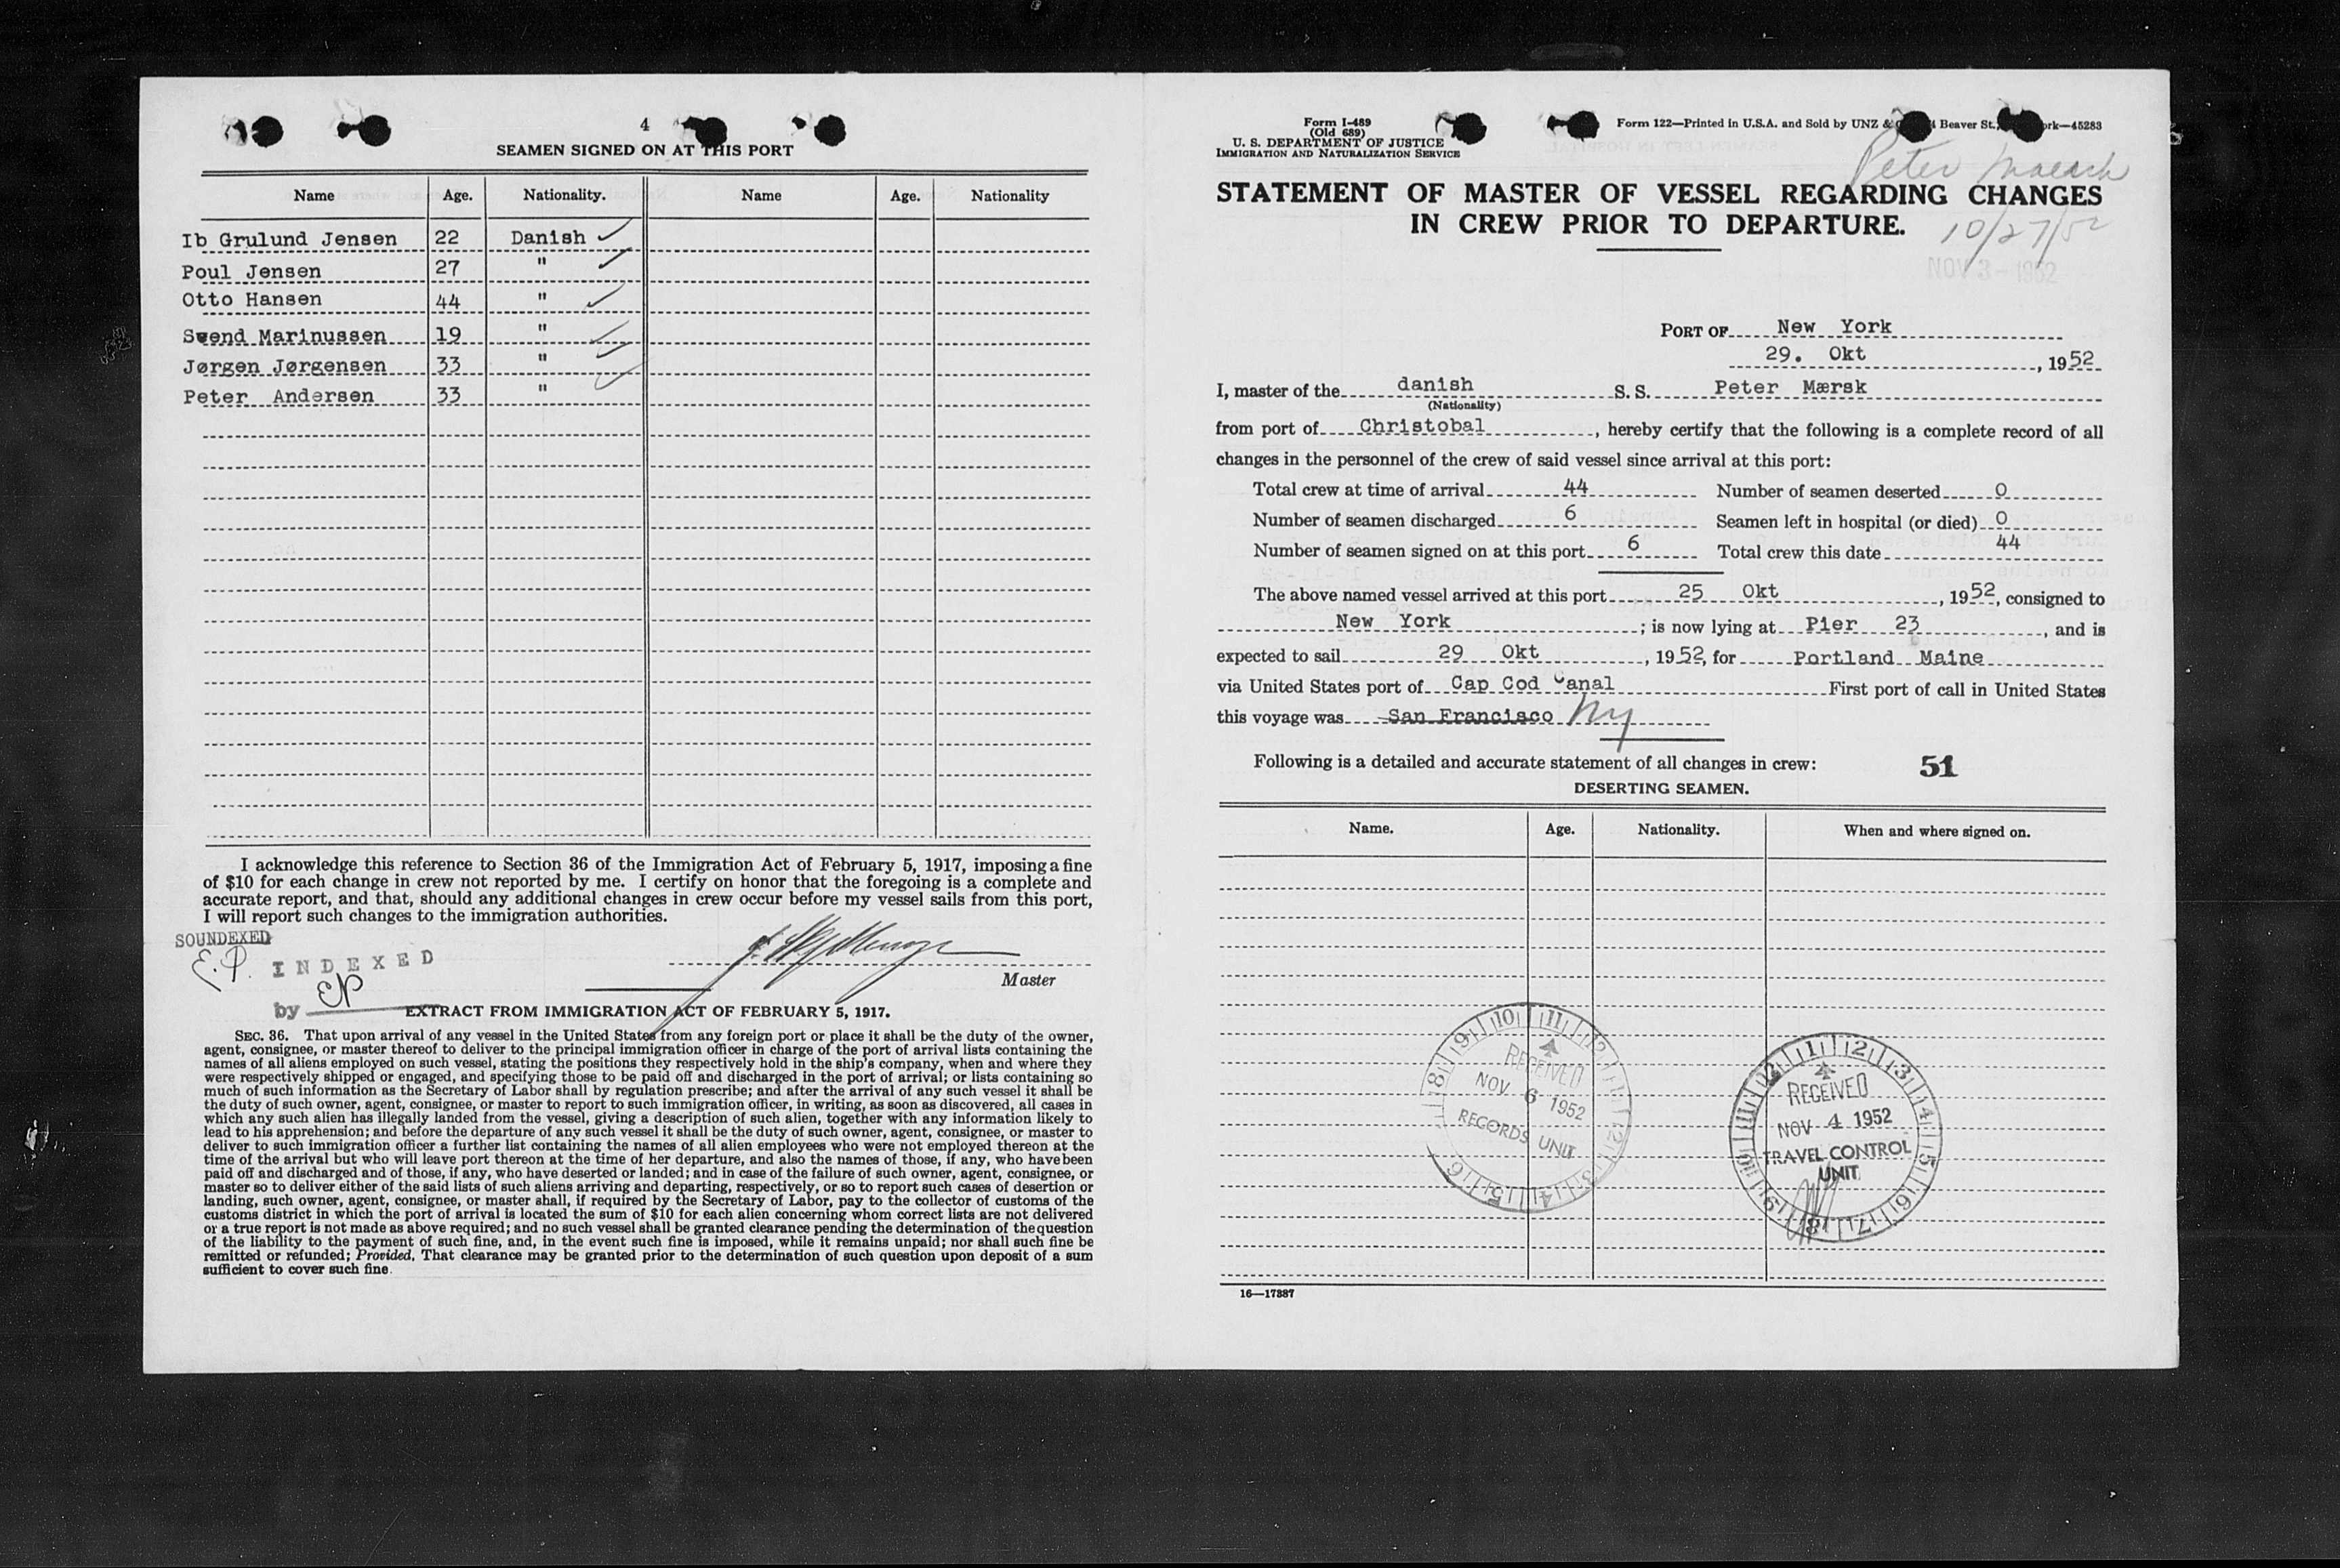 4
SEAMEN SIGNED ON AT THIS PORT
Name Age. Nationality. Name Age. Nationality
Ib Grulund Jensen 22 Danish
Poul Jensen 27 "
Otto Hansen 44 "
Svend Marinussen 19 "
Jørgen Jørgensen 33 "
Peter Andersen 33 "
I acknowledge this reference to Section 36 of the Immigration Act of February 5, 1917, imposing a fine
of $10 for each change in crew not reported by me. I certify on honor that the foregoing is a complete and
accurate report, and that, should any additional changes in crew occur before my vessel sails from this port,
I will report such changes to the immigration authorities.
SOUNDEXED
E.P. INDEXED
by EP
Master
EXTRACT FROM IMMIGRATION ACT OF FEBRUARY 5, 1917.
SEC. 36. That upon arrival of any vessel in the United States from any foreign port or place it shall be the duty of the owner,
agent, consignee, or master thereof to deliver to the principal immigration officer in charge of the port of arrival lists containing the
names of all aliens employed on such vessel, stating the positions they respectively hold in the ship's company, when and where they
were respectively shipped or engaged, and specifying those to be paid off and discharged in the port of arrival; or lists containing so
much of such information as the Secretary of Labor shall by regulation prescribe; and after the arrival of any such vessel it shall be
the duty of such owner, agent, consignee, or master to report to such immigration officer, in writing, as soon as discovered, all cases in
which any such alien has illegally landed from the vessel, giving a description of such alien, together with any information likely to
lead to his apprehension; and before the departure of any such vessel it shall be the duty of such owner, agent, consignee, or master to
deliver to such immigration officer a further list containing the names of all alien employees who were not employed thereon at the
time of the arrival but who will leave port thereon at the time of her departure, and also the names of those, if any, who have been
paid off and discharged and of those, if any, who have deserted or landed; and in case of the failure of such owner, agent, consignee, or
master so to deliver either of the said lists of such aliens arriving and departing, respectively, or so to report such cases of desertion or
landing, such owner, agent, consignee, or master shall, if required by the Secretary of Labor, pay to the collector of customs of the
customs district in which the port of arrival is located the sum of $10 for each alien concerning whom correct lists are not delivered
or a true report is not made as above required; and no such vessel shall be granted clearance pending the determination of the question
of the liability to the payment of such fine, and, in the event such fine is imposed, while it remains unpaid; nor shall such fine be
remitted or refunded; Provided, That clearance may be granted prior to the determination of such question upon deposit of a sum
sufficient to cover such fine.
Form I-489
(Old 689)
U. S. DEPARTMENT OF JUSTICE
IMMIGRATION AND NATURALIZATION SERVICE
Form 122—Printed in U.S.A. and Sold by UNZ & Beaver St., 45283
Peter Maersk
STATEMENT OF MASTER OF VESSEL REGARDING CHANGES
IN CREW PRIOR TO DEPARTURE.
10/27/52
NOV 3 - 1952
PORT OF New York
29. Okt, 1952
I, master of the danish S. S. Peter Mærsk
(Nationality)
from port of Christobal, hereby certify that the following is a complete record of all
changes in the personnel of the crew of said vessel since arrival at this port:
Total crew at time of arrival 44 Number of seamen deserted 0
Number of seamen discharged 6 Seamen left in hospital (or died) 0
Number of seamen signed on at this port 6 Total crew this date 44
The above named vessel arrived at this port 25 Okt, 1952, consigned to
New York; is now lying at Pier 23, and is
expected to sail 29 Okt, 1952, for Portland Maine
via United States port of Cap Cod Canal First port of call in United States
this voyage was San Francisco NY
Following is a detailed and accurate statement of all changes in crew: 51
DESERTING SEAMEN.
Name. Age. Nationality. When and where signed on.
RECEIVED
NOV 6 1952
RECORDS UNIT
RECEIVED
NOV 4 1952
TRAVEL CONTROL
UNIT
16—17887